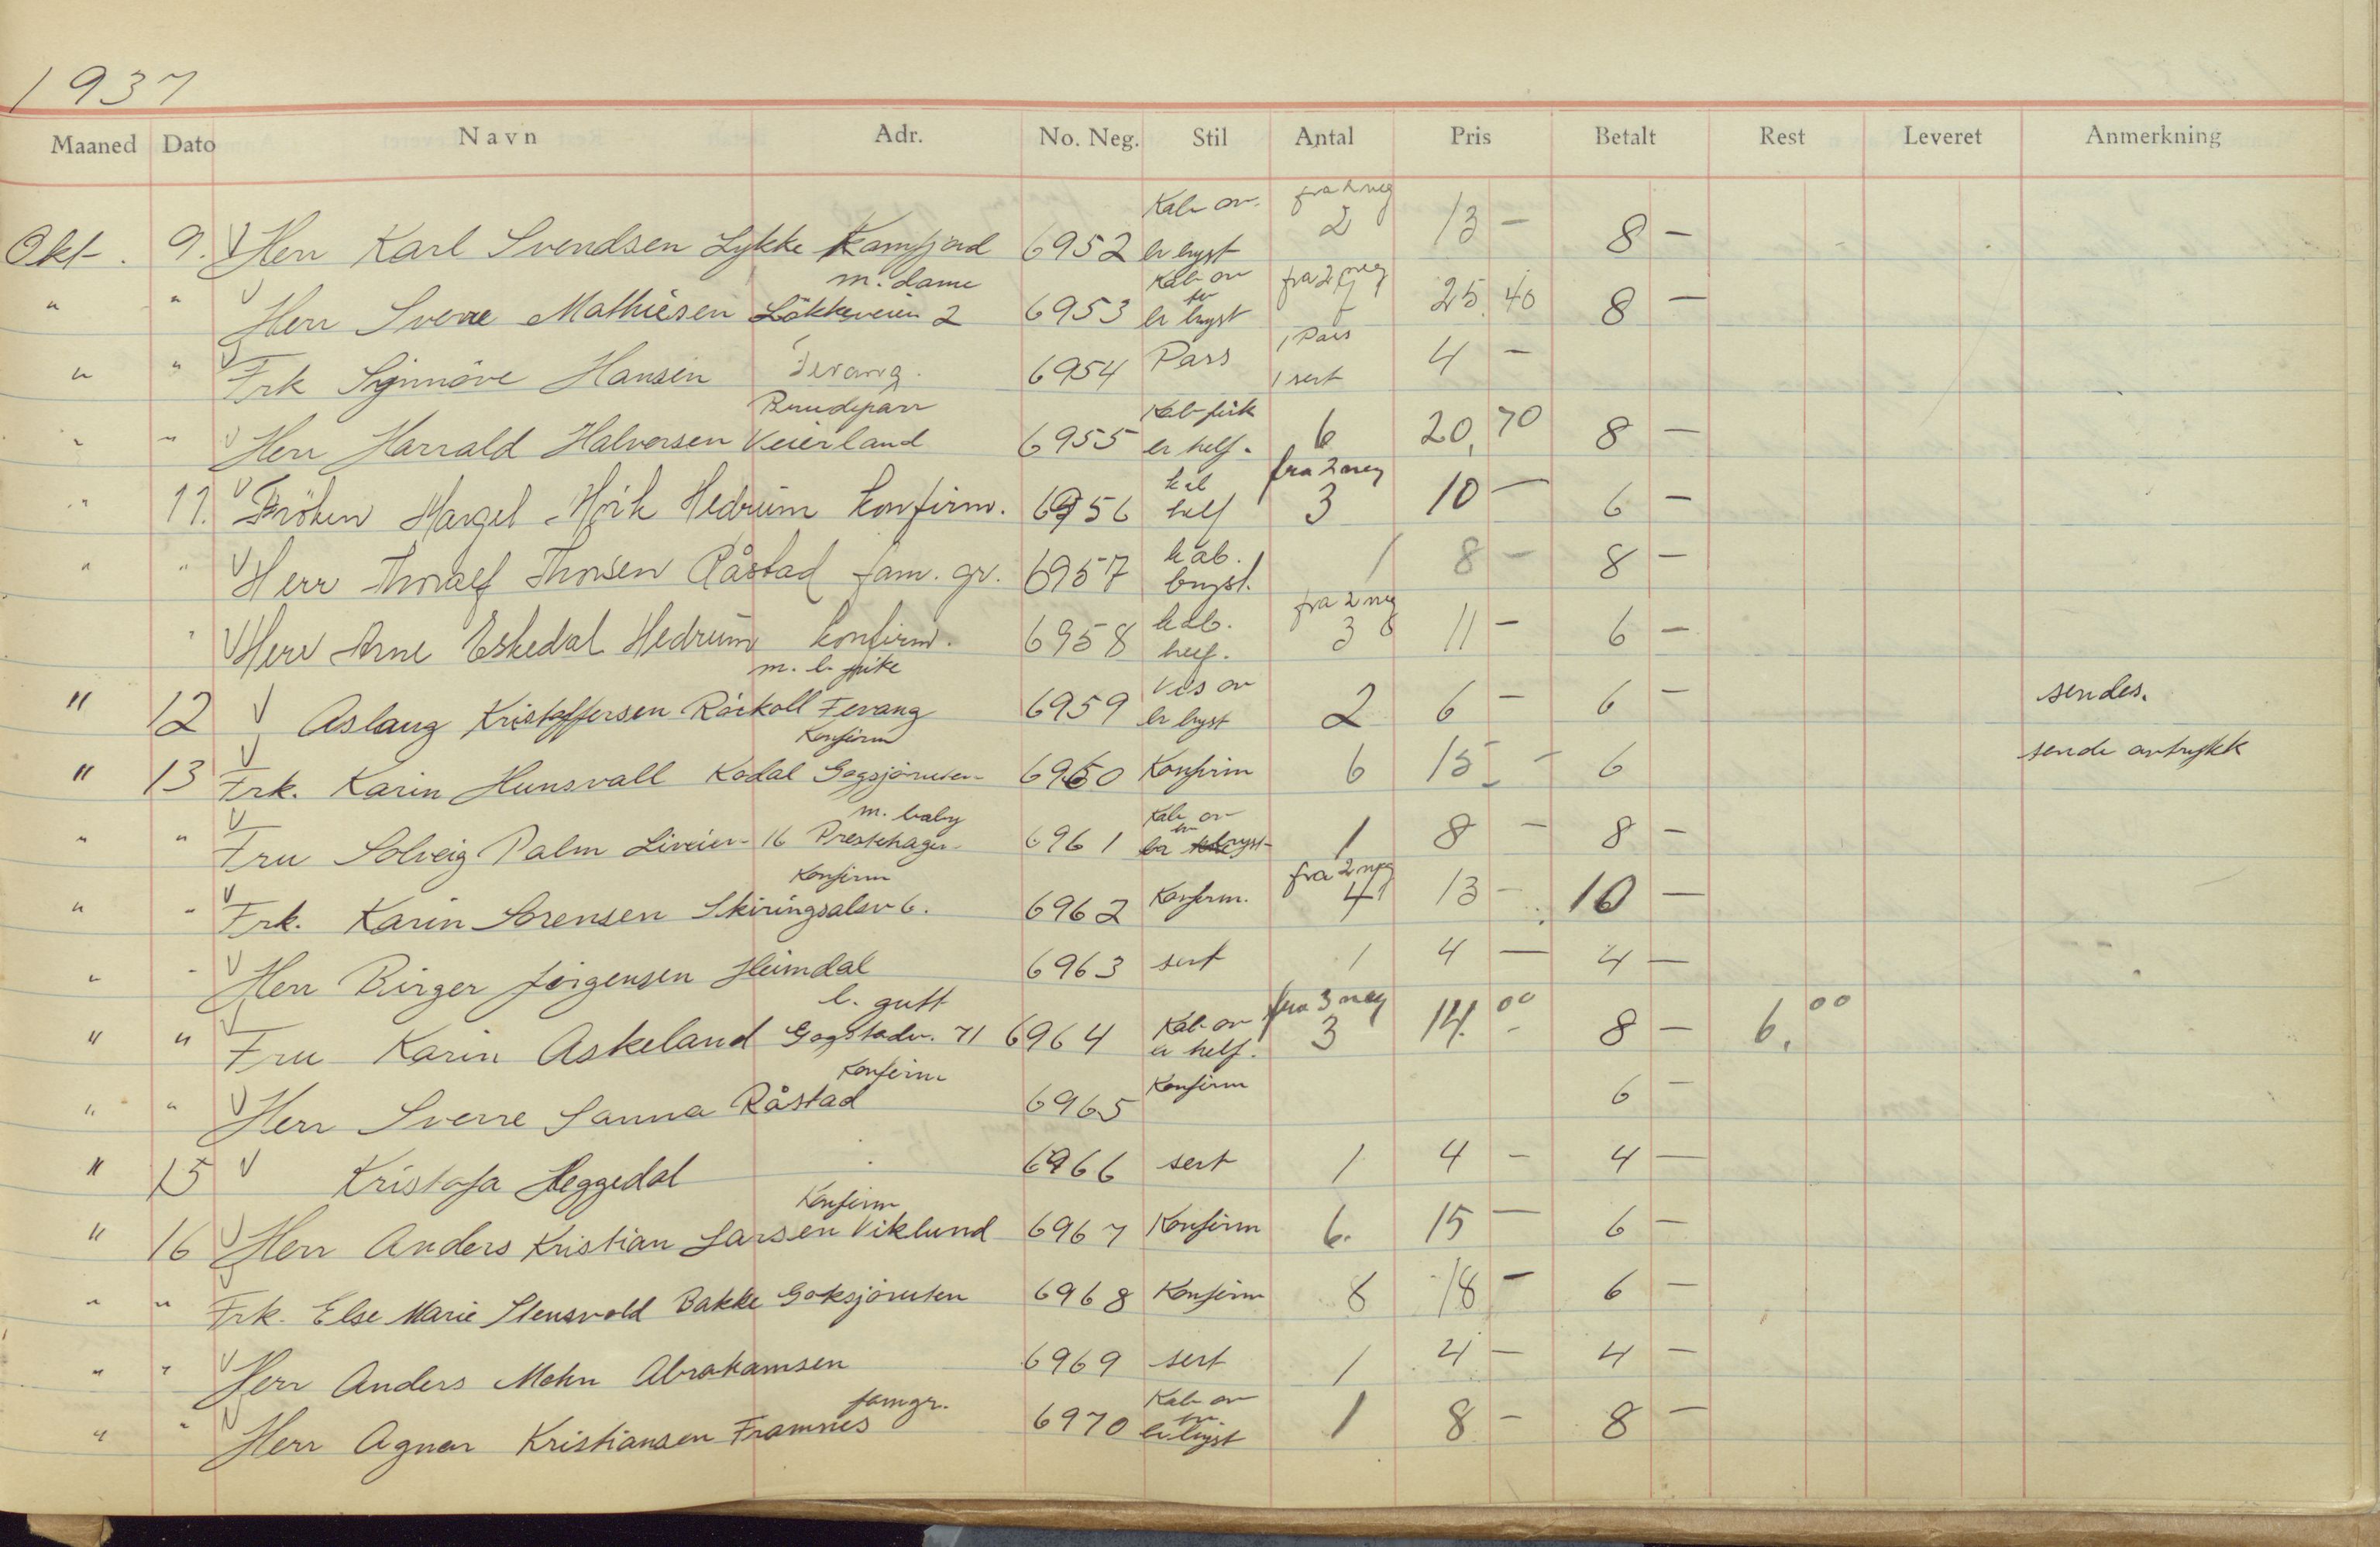 1937
Maaned Dato Navn Adr. No. Neg. Stil Antal Pris Betalt Rest Leveret Anmerkning
Kab or. fra 2 neg
Okt. 9. V Herr Karl Svendsen Lykke Kamfjord 6952 er bryst 2 13 - 8 -
m. dame Kab or fra 2 neg
" " V Herr Sverre Mathiesen Lökkeveien 2 6953 er bryst 7 25.40 8 -
1 Pass
" " V Frk Synnöve Hansen Fevang. 6954 Pass 1 sert 4 -
Brudepar Kab
" " V Herr Harrald Halvorsen Veierland 6955 er helf. 6 20,70 8 -
kab fra 2 neg
" 11. V Fröken Margel Mörk Hedrum konfirm. 6956 helf 3 10 - 6 -
kab.
" " V Herr Thoralf Thorsen Råstad fam. gr. 6957 bryst. 1 8 - 8 -
kab. fra 2 neg
" V Herr Arne Eskedal Hedrum konfirm. 6958 helf. 3 11 - 6 -
m. l. pike Vis or
" 12 V Aslaug Kristoffersen Råskoll Fevang 6959 er bryst 2 6 - 6 - sendes.
Konfirm
" 13 V Frk. Karin Hunsvall Kodal Gogsjöruten 6960 Konfirm 6 15 - 6 sende avtrykk
m. baby Kab or
" " V Fru Solveig Palm Liveien 16 Prestehagen 6961 er bryst 1 8 - 8 -
Konfirm fra 2 neg
" " V Frk. Karin Sorensen Skiringsalsv 6. 6962 Konfirm. 4 13 - 10 -
" " V Herr Birger Jörgensen Heimdal 6963 sert 1 4 - 4 -
l. gutt Kab or fra 3 neg
" " V Fru Karin Askeland Gogstadv. 71 6964 er helf. 3 14.00 8 - 6,00
Konfirm
" " V Herr Sverre Sanna Råstad 6965 Konfirm 6 -
" 15 V Kristofa Heggedal 6966 sert 1 4 - 4 -
Konfirm
" 16 V Herr Anders Kristian Larsen Viklund 6967 Konfirm 6. 15 - 6 -
" " V Frk. Else Marie Stensvold Bakke Goksjöruten 6968 Konfirm 8 18 - 6 -
" " V Herr Anders Mohn Abrahamsen 6969 sert 1 4 - 4 -
famgr. Kab or
" " V Herr Agnar Kristiansen Framnes 6970 er bryst 1 8 - 8 -